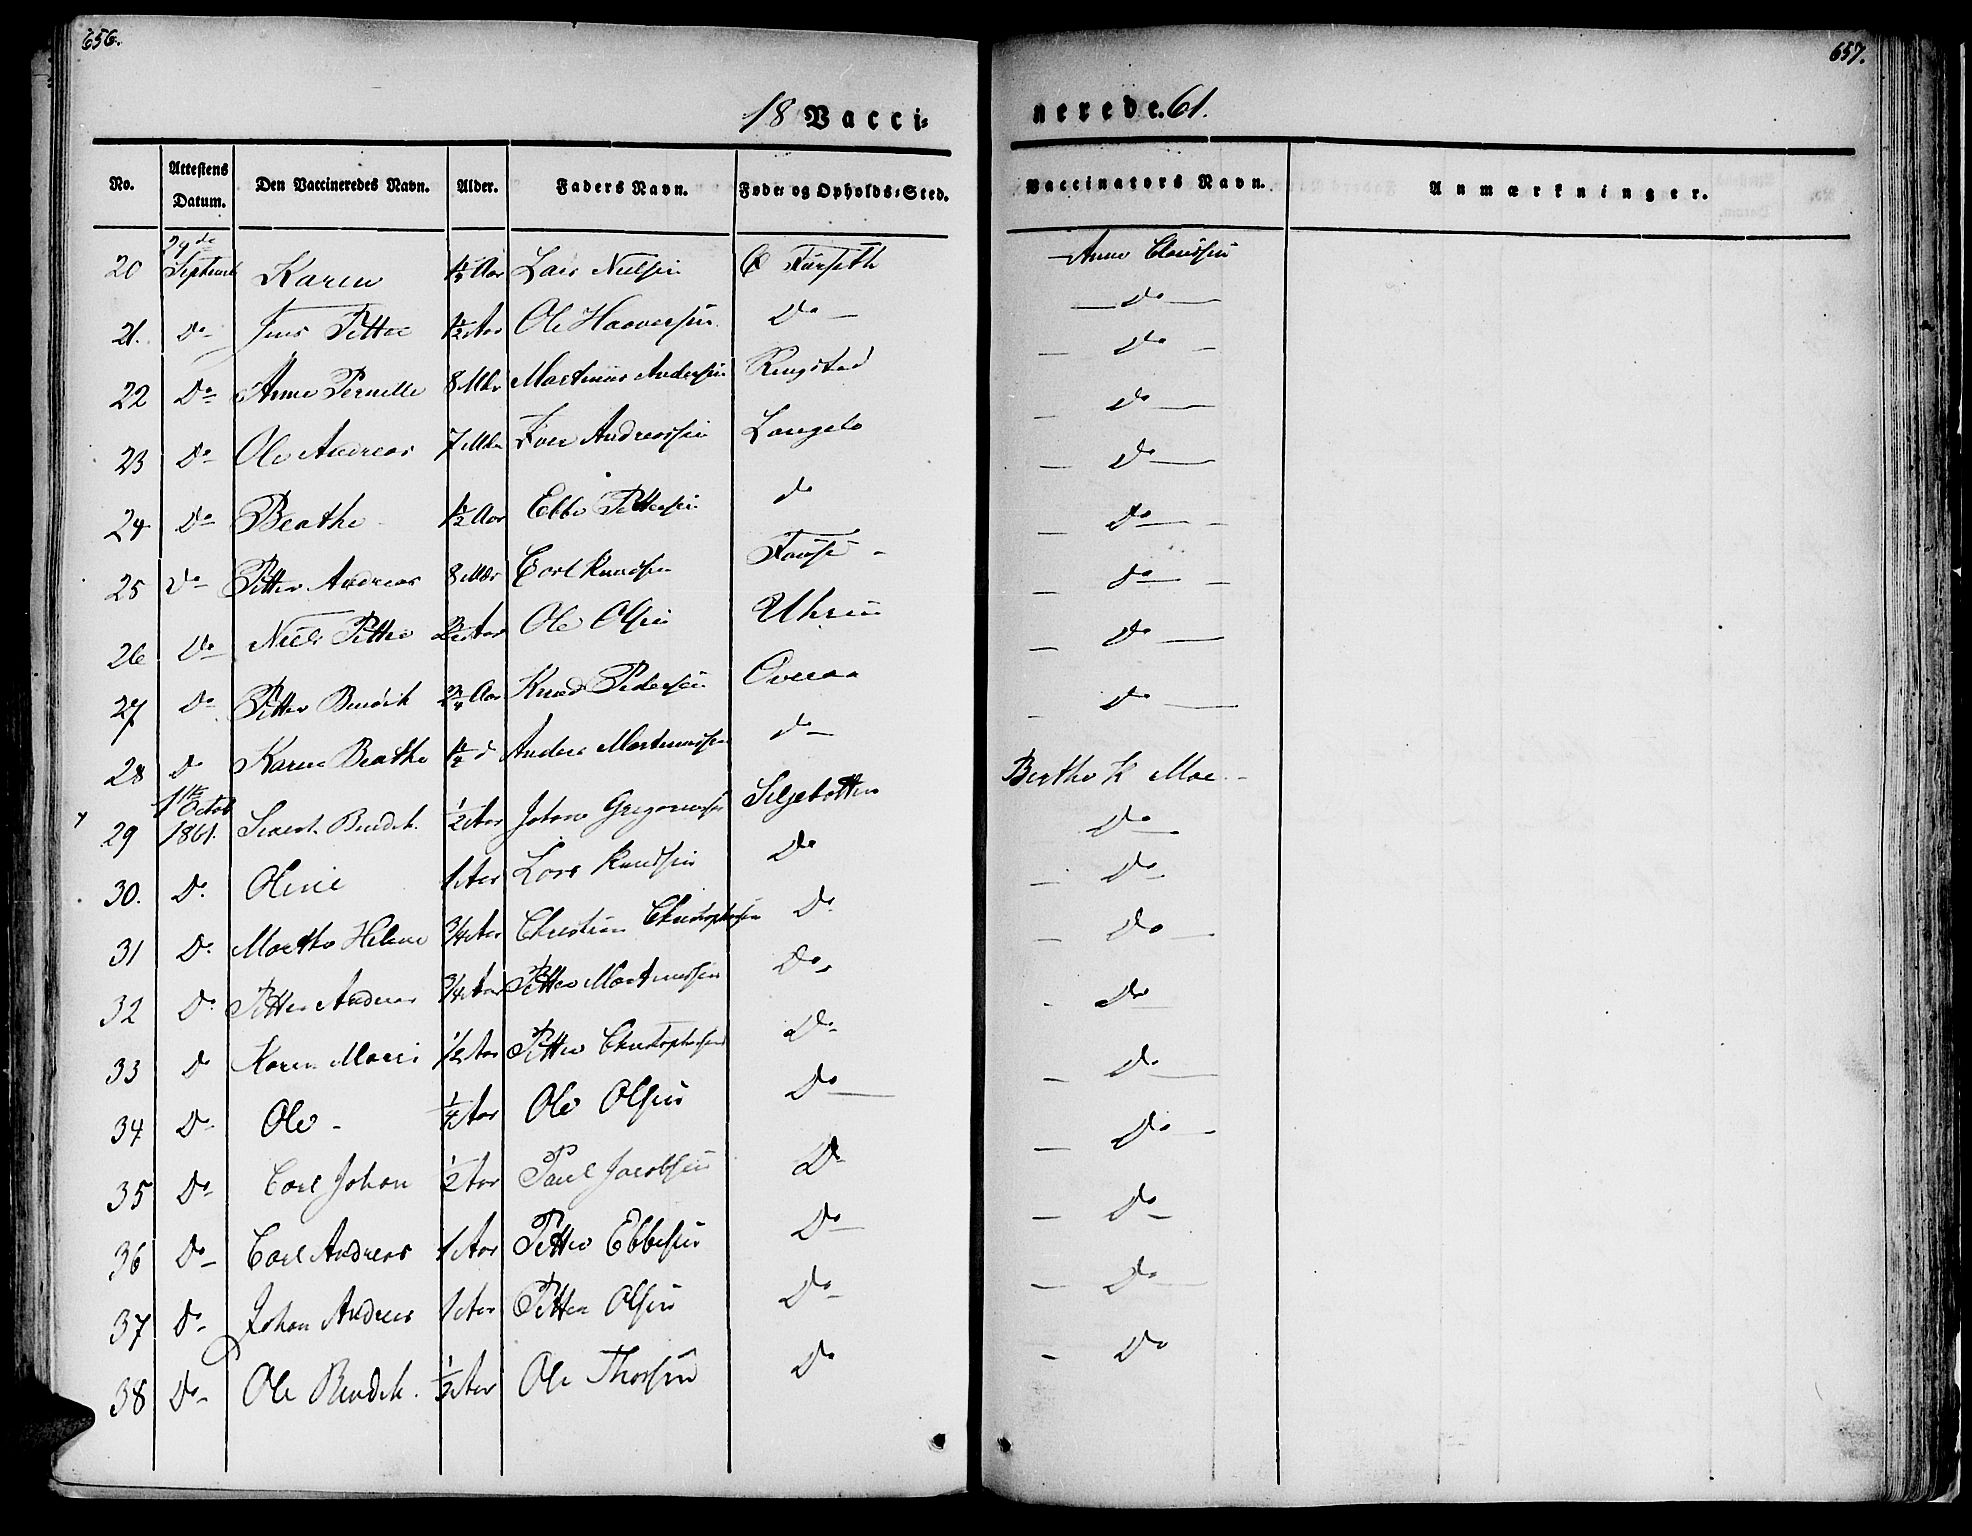 656.
18 Vacci-
No. Attestens Datum. Den Vaccineredes Navn. Alder. Faders Navn. Føde- og Opholds-Sted.
20 29de Septemb Karen Aar Lars Nielsen
21. Do Jens Petter 1/2 Aar Ole Haaversen Do
22 Do Anne Pernelle 8 Mdr Martinus Andersen Ringstad
23 Do Ole Andreas 7 Mdr Iver Andreassen Langelo
24 Do Beathe 1/2 Aar Ebbe Pettersen do
25 Do Petter Andreas 8 Mdr Carl Knudsen
26 Do Niels Petter Aar Ole Olsen
27 Do Petter Bendik Aar Knud Pedersen Overaa
28 Do Karen Beathe 1/2 d Anders Martinussen do
29 1te Octob 1861. Sivert Bendik. 1/2 Aar Johan Gregoriussen Seljebotten
30. Do. Oline 1 Aar Lars Knudsen Do
31 Do. Marthe Helene 3/4 Aar Christian Christophersen Do.
32 Do. Petter Andreas 3/4 Aar Petter Martinussen Do
33 Do Karen Marie 1/2 Aar Petter Christophersen Do
34 Do Ole 1/4 Aar Ole Olsen Do
35 Do Carl Johan 1/2 Aar Paul Jacobsen Do
36 Do Carl Andreas 1 Aar Petter Ebbesen Do
37 Do Johan Andreas 1 Aar Petter Olsen Do
38 Do Ole Bendik. Aar Ole Thorsen Do
657.
nerede. 61.
Vaccinators Navn. Anmærkninger.
Anne Claussen
Do
Do
Do
Do
Do
Do
Do
Do
Berthe K Moe
Do
Do
Do
Do
Do
Do
Do
Do
Do